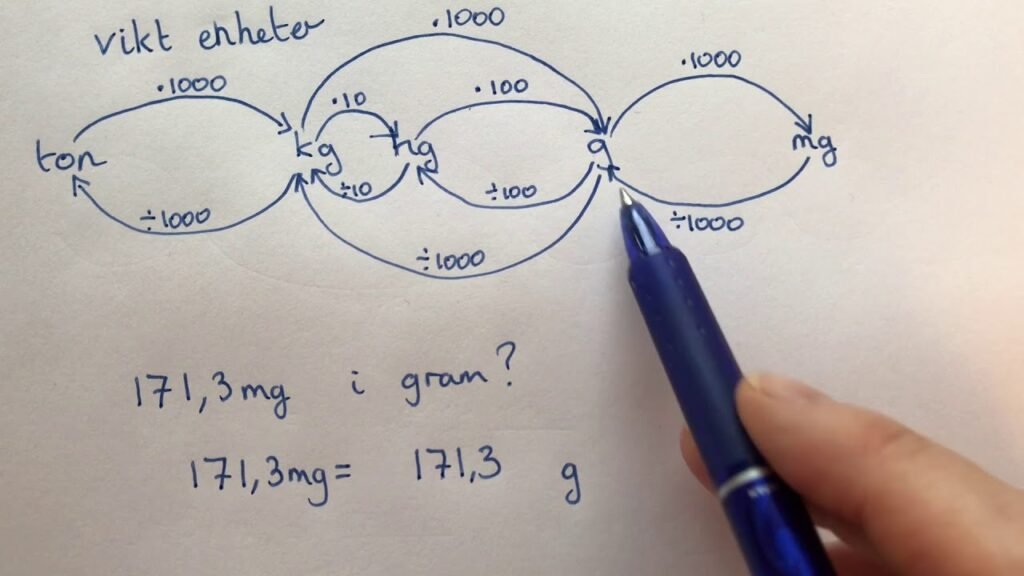 vikt enheter
·1000
·1000
·10
·100
·1000
ton
kg
hg
g
mg
÷1000
÷10
÷100
÷1000
÷1000
171,3mg i gram?
171,3mg= 171,3 g